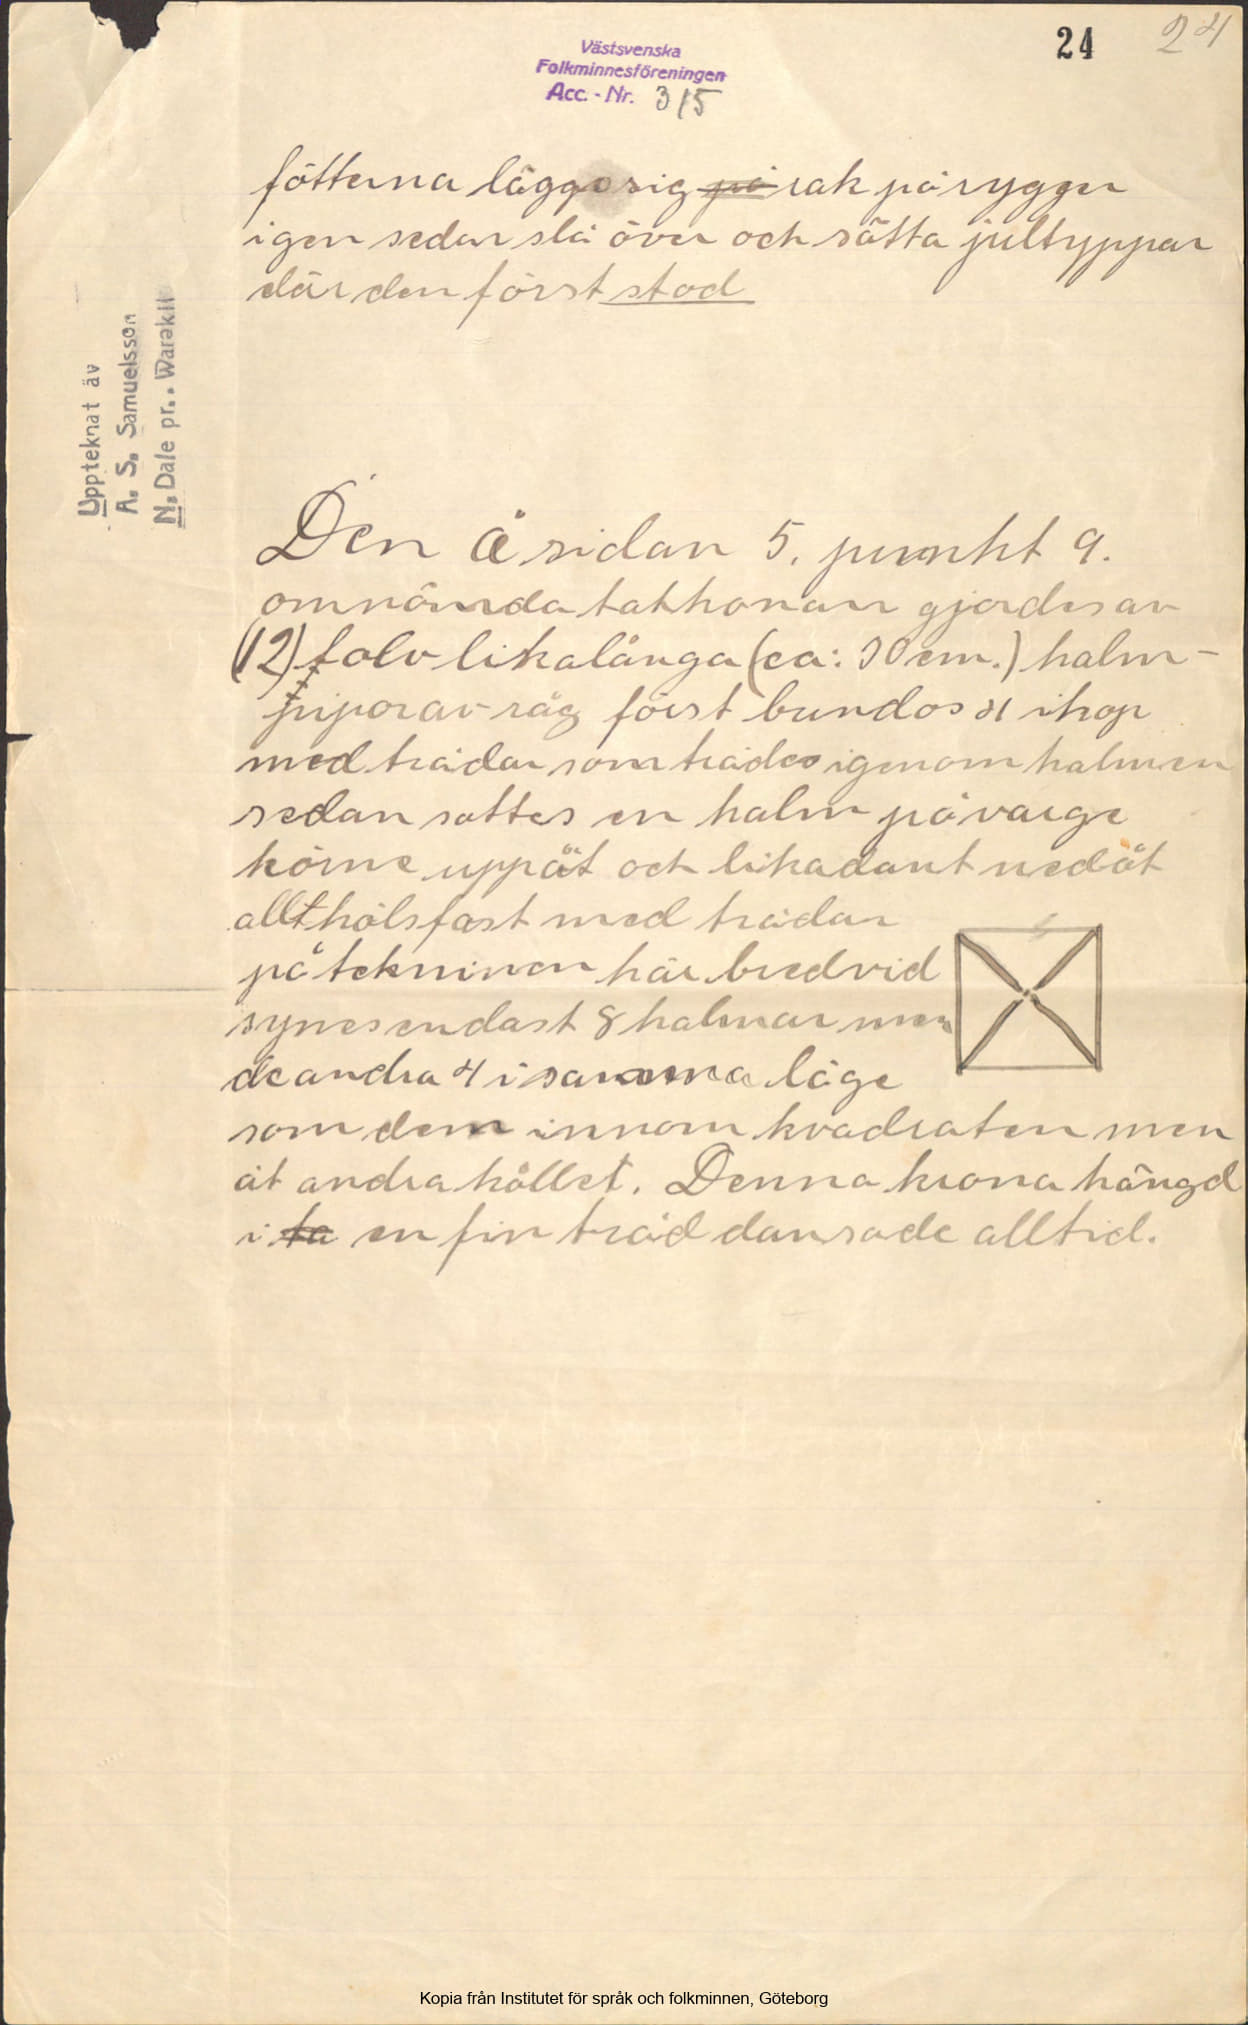 24 24
Västsvenska
Folkminnesföreningen
Acc. - Nr. 315
fötterna lägga sig på rak på ryggen
igen sedan slå över och sätta jultyppan
där den först stod
Uppteknat äv
A. S. Samuelsson
N. Dale pr.. Warekil
Den å sidan 5. punkt 9.
omnämda takkonan gjordes av
(12) tolv likalånga (ca: 30 cm.) halm-
pipor av råg först bundos 4 ihop
med trådar som trädes igenom halmen
sedan sattes en halm på varge
hörne uppåt och likadant nedåt
allt höls fast med trådar
på tekninen här bredvid
synes endast 8 halmar men
de andra 4 i samma läge
som dem innom kvadraten men
åt andra hållet. Denna krona hängd
i ta en fin tråd dansade alltid.
Kopia från Institutet för språk och folkminnen, Göteborg